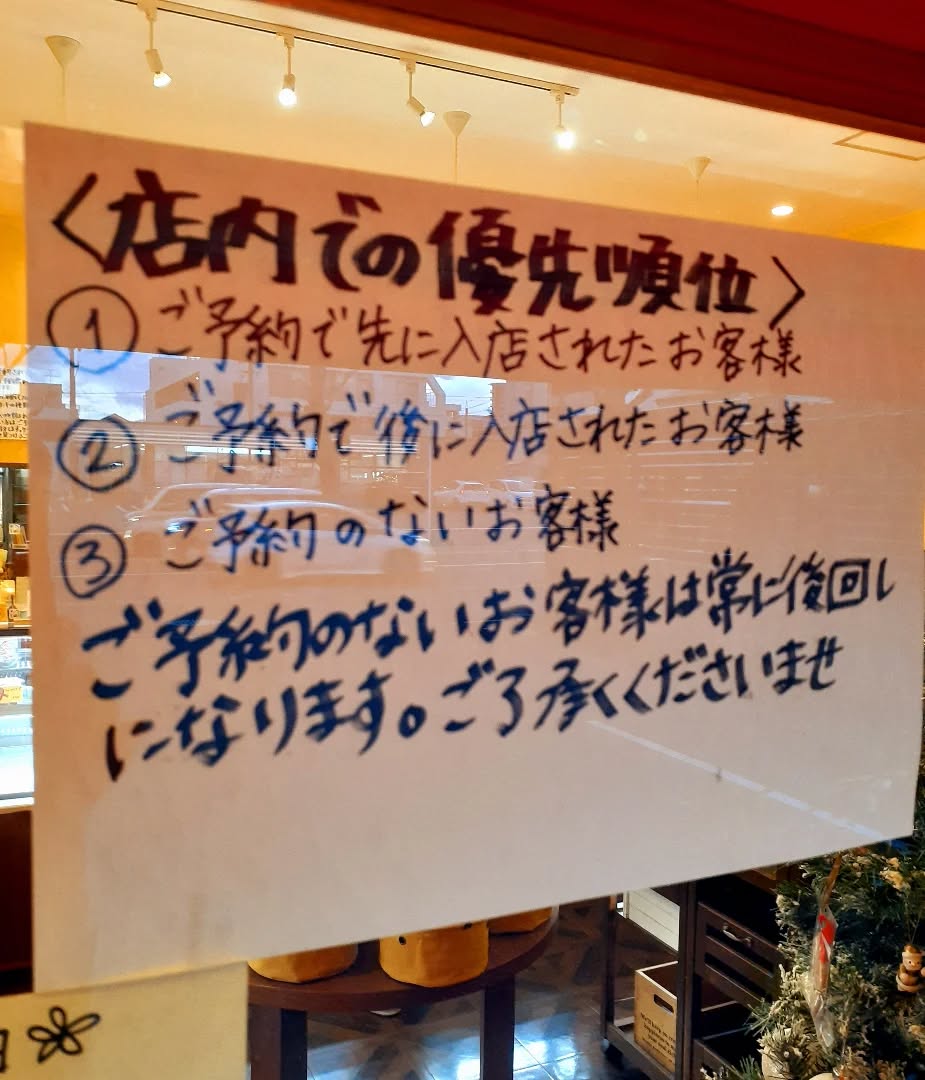 〈店内での優先順位〉
① ご予約で先に入店されたお客様
② ご予約で後に入店されたお客様
③ ご予約のないお客様
ご予約のないお客様は常に後回し
になります。ご了承くださいませ